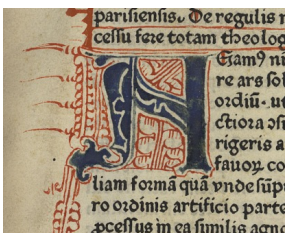 parisiensis. De regulis
cessu fere totam theolog
N Eam9 ni
re ars sol
ordiū. ut
ctiora ↄsi
rigeris a
fauoꝝ co
liam formā quā vnde sūp
ro ordinis artificio parte
ꝓcessus in ea similis agno